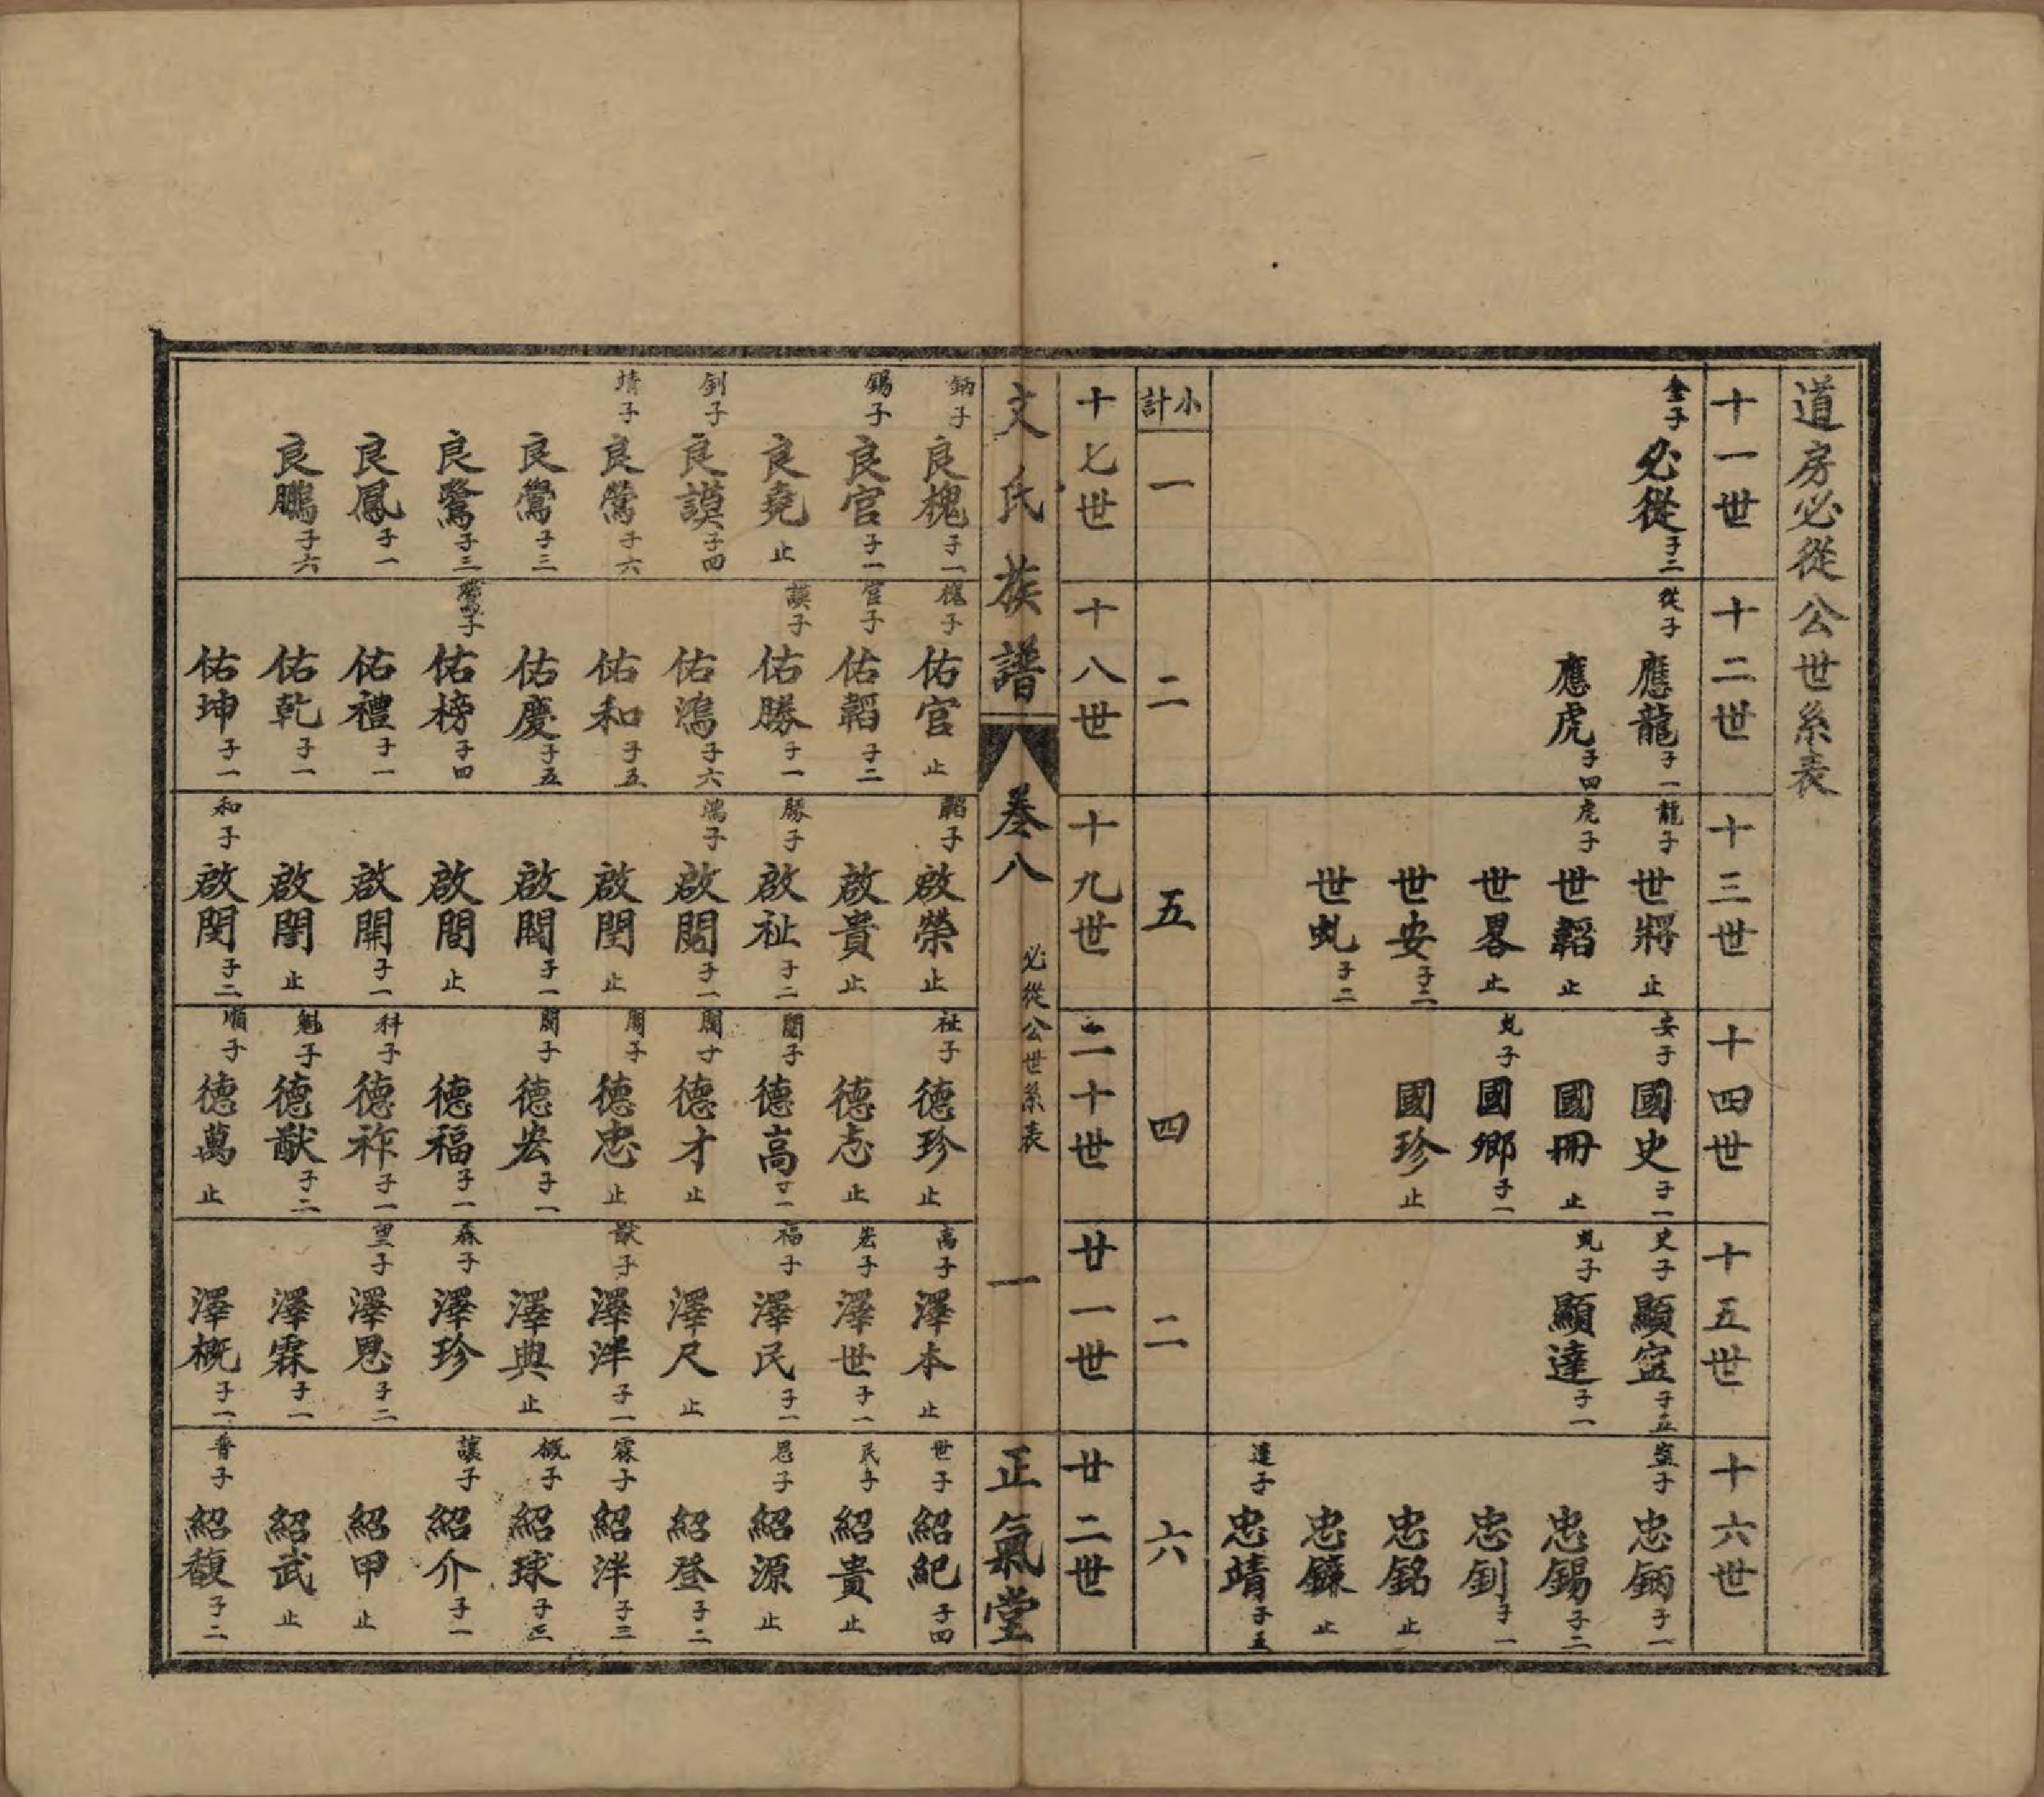 道房必從公世系表
十一世
金子 必從 子二
十二世
從子 應龍 子一
應虎 子四
十三世
龍子 世將 止
虎子 世韜 止
世畧 止
世安 子二
世虬 子二
十四世
安子 國史 子一
國冊 止
虬子 國鄉 子一
國珍 止
十五世
史子 顯寍 子五
顯達 子一
十六世
忠鈵 子一
忠錫 子二
忠釗 子一
忠銘 止
忠鐮 止
達子 忠靖 子五
小計
一
二
五
四
二
六
十七世
十八世
十九世
二十世
廿一世
廿二世
文氏族譜
卷八
必從公世系表
一
正氣堂
鈵子 良槐 子一
錫子 良官 子一
良堯 止
釗子 良謨 子四
靖子 良鶯 子六
良鸞 子三
良鷟 子三
良鳳 子一
良鵬 子六
槐子 佑官 止
官子 佑韜 子二
謨子 佑勝 子一
佑鴻 子六
佑和 子五
佑慶 子五
佑榜 子四
佑禮 子一
佑乾 子一
佑坤 子一
韜子 啟榮 止
啟貴 止
勝子 啟祉 子二
鴻子 啟閣 子一
啟閏 止
啟閶 子一
啟間 止
啟開 子一
啟閨 止
和子 啟閔 子二
祉子 德珍 止
德志 止
德高 子一
德才 止
德忠 止
德宏 子一
德福 子一
科子 德祚 子一
魁子 德猷 子二
順子 德萬 止
高子 澤本 止
宏子 澤世 子一
福子 澤民 子一
澤尺 止
猷子 澤泮 子一
澤典 止
森子 澤珍
望子 澤恩 子二
澤霖 子一
澤概 子一
世子 紹紀 子四
民子 紹貴 止
恩子 紹源 止
紹登 子二
霖子 紹洋 子三
概子 紹球 子三
讓子 紹介 子一
紹甲 止
紹武 止
普子 紹馥 子二